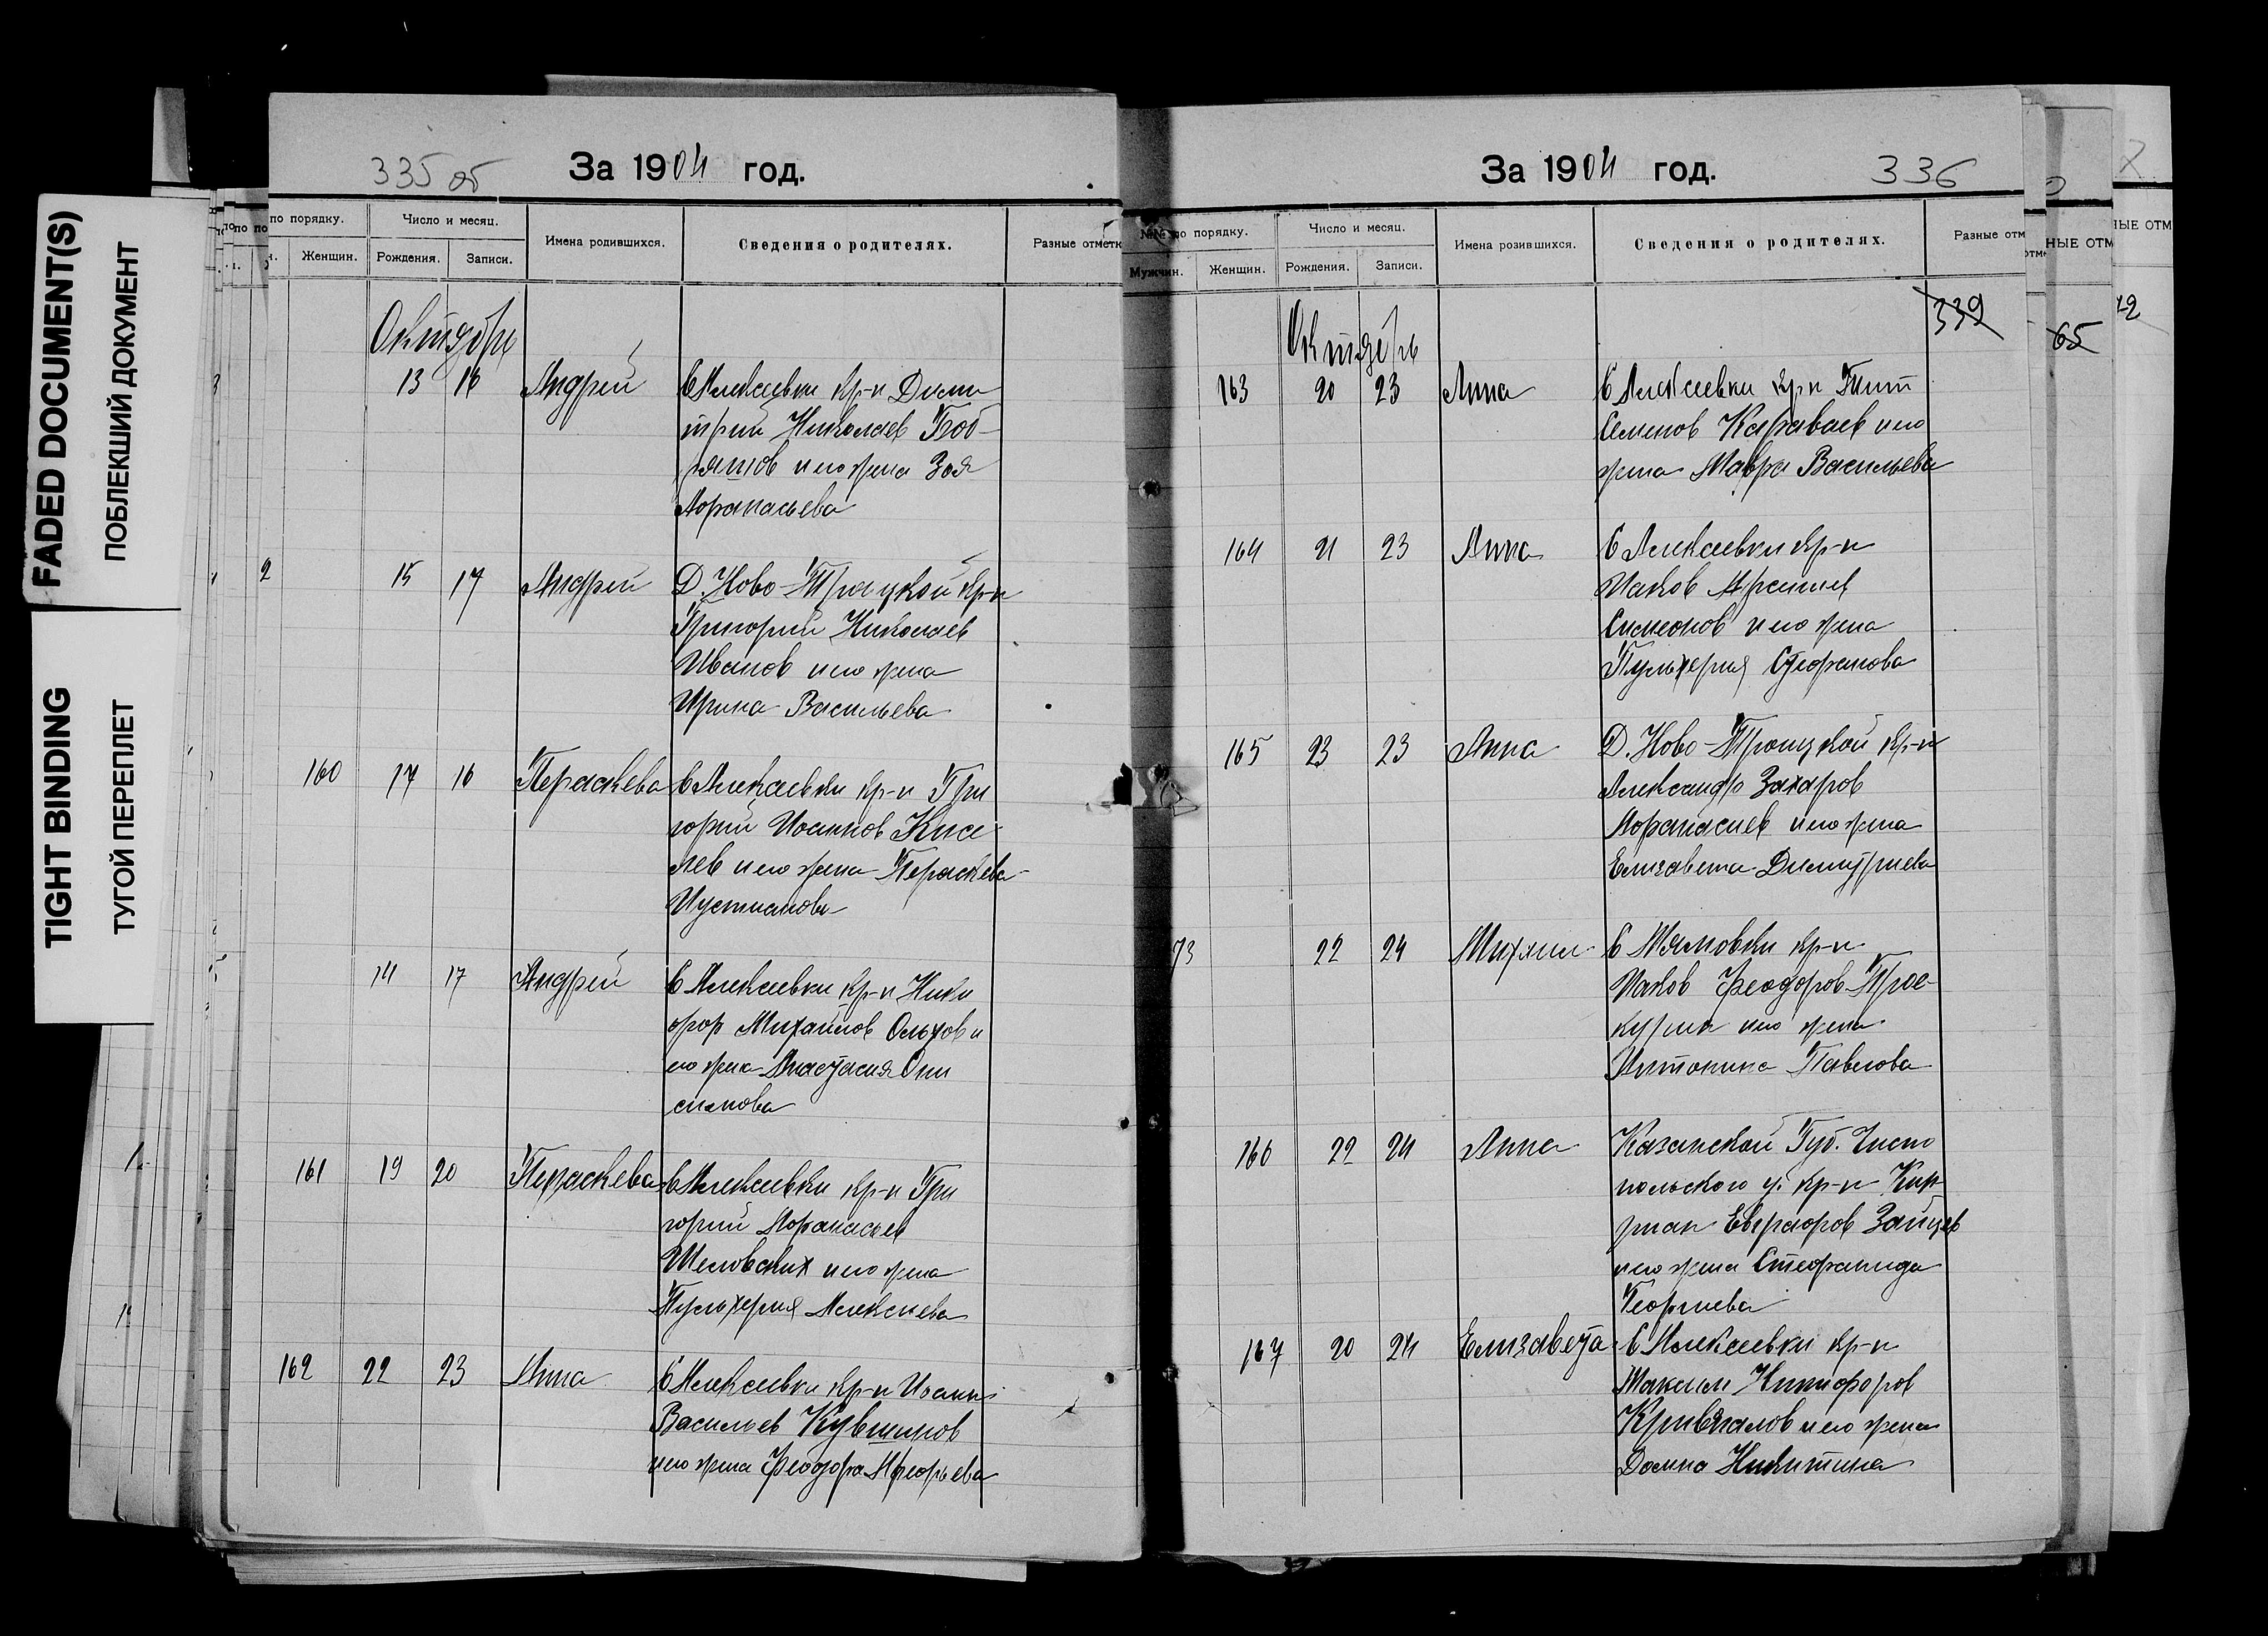 FADED DOCUMENT(S)
ПОБЛЕКШИЙ ДОКУМЕНТ
TIGHT BINDING
ТУГОЙ ПЕРЕПЛЕТ
335 об
За 1904 год.
по порядку.
Число и месяц.
Имена родившихся.
Сведения о родителях.
Разные отметк
Женщин.
Рождения.
Записи.
Октябрь
13 16 Андрей С Алексеевки кр-н Дими
трий Николаев Боб
ряшов и его жена Зоя
Афанасьева
2 15 17 Андрей Д. Ново-Троицкой кр-н
Григорий Николаев
Иванов и его жена
Ирина Васильева
160 17 16 Пераскева С Алексеевки кр-н Гри
горий Иоаннов Кисе
лев и его жена Пераскева
Иустианова
14 17 Андрей С Алексеевки кр-н Ники
фор Михайлов Ольхов и
его жена Анастасия Они
симова
161 19 20 Пераскева С Алексеевки кр-н Гри
горий Афанасьев
Шеловских и его жена
Пульхерия Алексеева
162 22 23 Анна С Алексеевки кр-н Иоанн
Васильев Кувшинов
и его жена Феодора
За 1904 год.
336
№№ по порядку.
Число и месяц.
Имена розившихся.
Сведения о родителях.
Разные отм
Мужчин.
Женщин.
Рождения.
Записи.
339
Октябрь
163 20 23 Анна С Алексеевки кр-н Тит
Семенов Караваев и его
жена Мавра Васильева
164 21 23 Анна С Алексеевки кр-н
Иаков
Симеонов и его жена
Пульхерия Стефанова
165 23 23 Анна Д. Ново-Троицкой кр-н
Александр Захаров
Афанасиев и его жена
Елизавета Димитриева
73 22 24 Михаил С Мямовки кр-н
Иаков Феодоров Трое
курша и его жена
Антонина Павлова
166 22 24 Анна Казанской Губ. Чисто
польского у. кр-н Кир
риан Евграфов Зайцев
и его жена Стефанида
Георгиева
167 20 24 Елизавета С Алексеевки кр-н
Максим Никифоров
Кривчалов и его жена
Домна Никитина
НЫЕ ОТМ
65
НЫЕ ОТМ